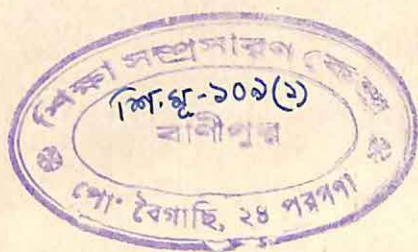 শিক্ষা সম্প্রসারণ কেন্দ্র
শি.মূ-১০৯(১)
বাণীপুর
পোঃ বৈগাছি, ২৪ পরগণা